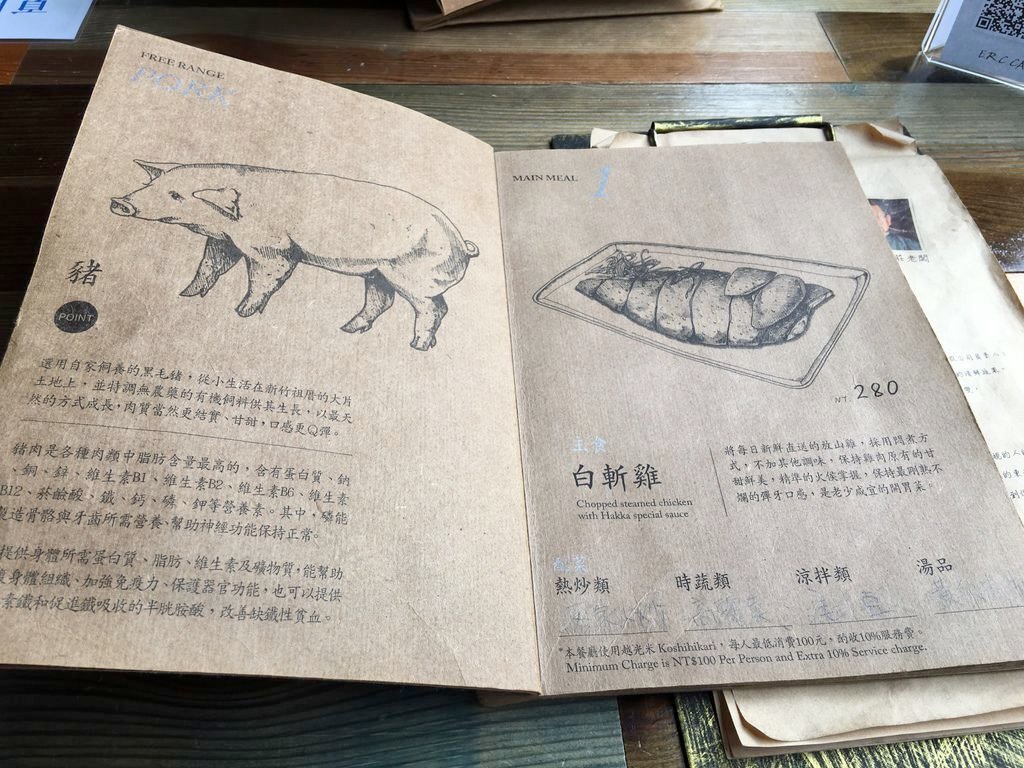 FREE RANGE
PORK
豬
POINT
選用自家飼養的黑毛豬，從小生活在新竹祖厝的大片
土地上，並特調無農藥的有機飼料供其生長，以最天
然的方式成長，肉質當然更結實、甘甜，口感更Q彈。
豬肉是各種肉類中脂肪含量最高的，含有蛋白質、鈉
、銅、鋅、維生素B1、維生素B2、維生素B6、維生素
B12、菸鹼酸、鐵、鈣、磷、鉀等營養素。其中，磷能
造骨骼與牙齒所需營養，幫助神經功能保持正常。
提供身體所需蛋白質、脂肪、維生素及礦物質，能幫助
身體組織、加強免疫力、保護器官功能，也可以提供
素鐵和促進鐵吸收的半胱胺酸，改善缺鐵性貧血。
MAIN MEAL
1
NT. 280
主食
白斬雞
Chopped steamed chicken
with Hakka special sauce
將每日新鮮直送的放山雞，採用悶煮方
式，不加其他調味，保持雞肉原有的甘
甜鮮美，精準的火侯掌握，保持最剛熟不
爛的彈牙口感，是老少咸宜的開胃菜。
配菜
熱炒類
時蔬類
涼拌類
湯品
*本餐廳使用越光米 Koshihikari，每人最低消費100元，酌收10%服務費。
Minimum Charge is NT$100 Per Person and Extra 10% Service charge.
莊老闆